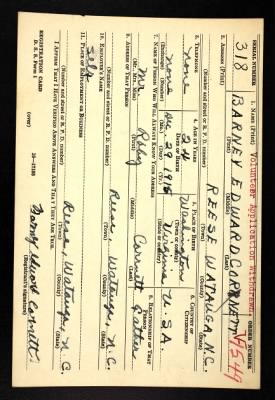 Volunteer Application Withdrawn.
SERIAL NUMBER
1. NAME (Print)
ORDER NUMBER
318
BARNEY EDWARD CORNETT
(First) (Middle) (Last)
2. ADDRESS (Print)
REESE WATAUGA N.C.
(Number and street or R. F. D. number) (Town) (County) (State)
3. TELEPHONE
4. AGE IN YEARS
5. PLACE OF BIRTH
6. COUNTRY OF CITIZENSHIP
none
24
DATE OF BIRTH
(Town or county)
none
U.S.A.
(Exchange) (Number)
(Mo.) (Day) (Yr.)
(State or country)
7. NAME OF PERSON WHO WILL ALWAYS KNOW YOUR ADDRESS
8. RELATIONSHIP OF THAT PERSON
Mr Cornett Father
(Mr., Mrs., Miss) (First) (Middle) (Last)
9. ADDRESS OF THAT PERSON
Reese, Watauga, N.C.
(Number and street or R. F. D. number) (Town) (County) (State)
10. EMPLOYER'S NAME
Self
11. PLACE OF EMPLOYMENT OR BUSINESS
Reese, Watauga, N.C.
(Number and street or R. F. D. number) (Town) (County) (State)
I AFFIRM THAT I HAVE VERIFIED ABOVE ANSWERS AND THAT THEY ARE TRUE.
REGISTRATION CARD
D. S. S. Form 1
(over)
Barney Edward Cornett
(Registrant's signature)